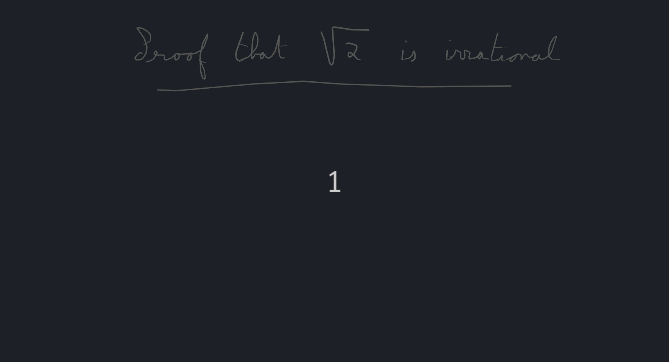 Proof that √2 is irrational
1